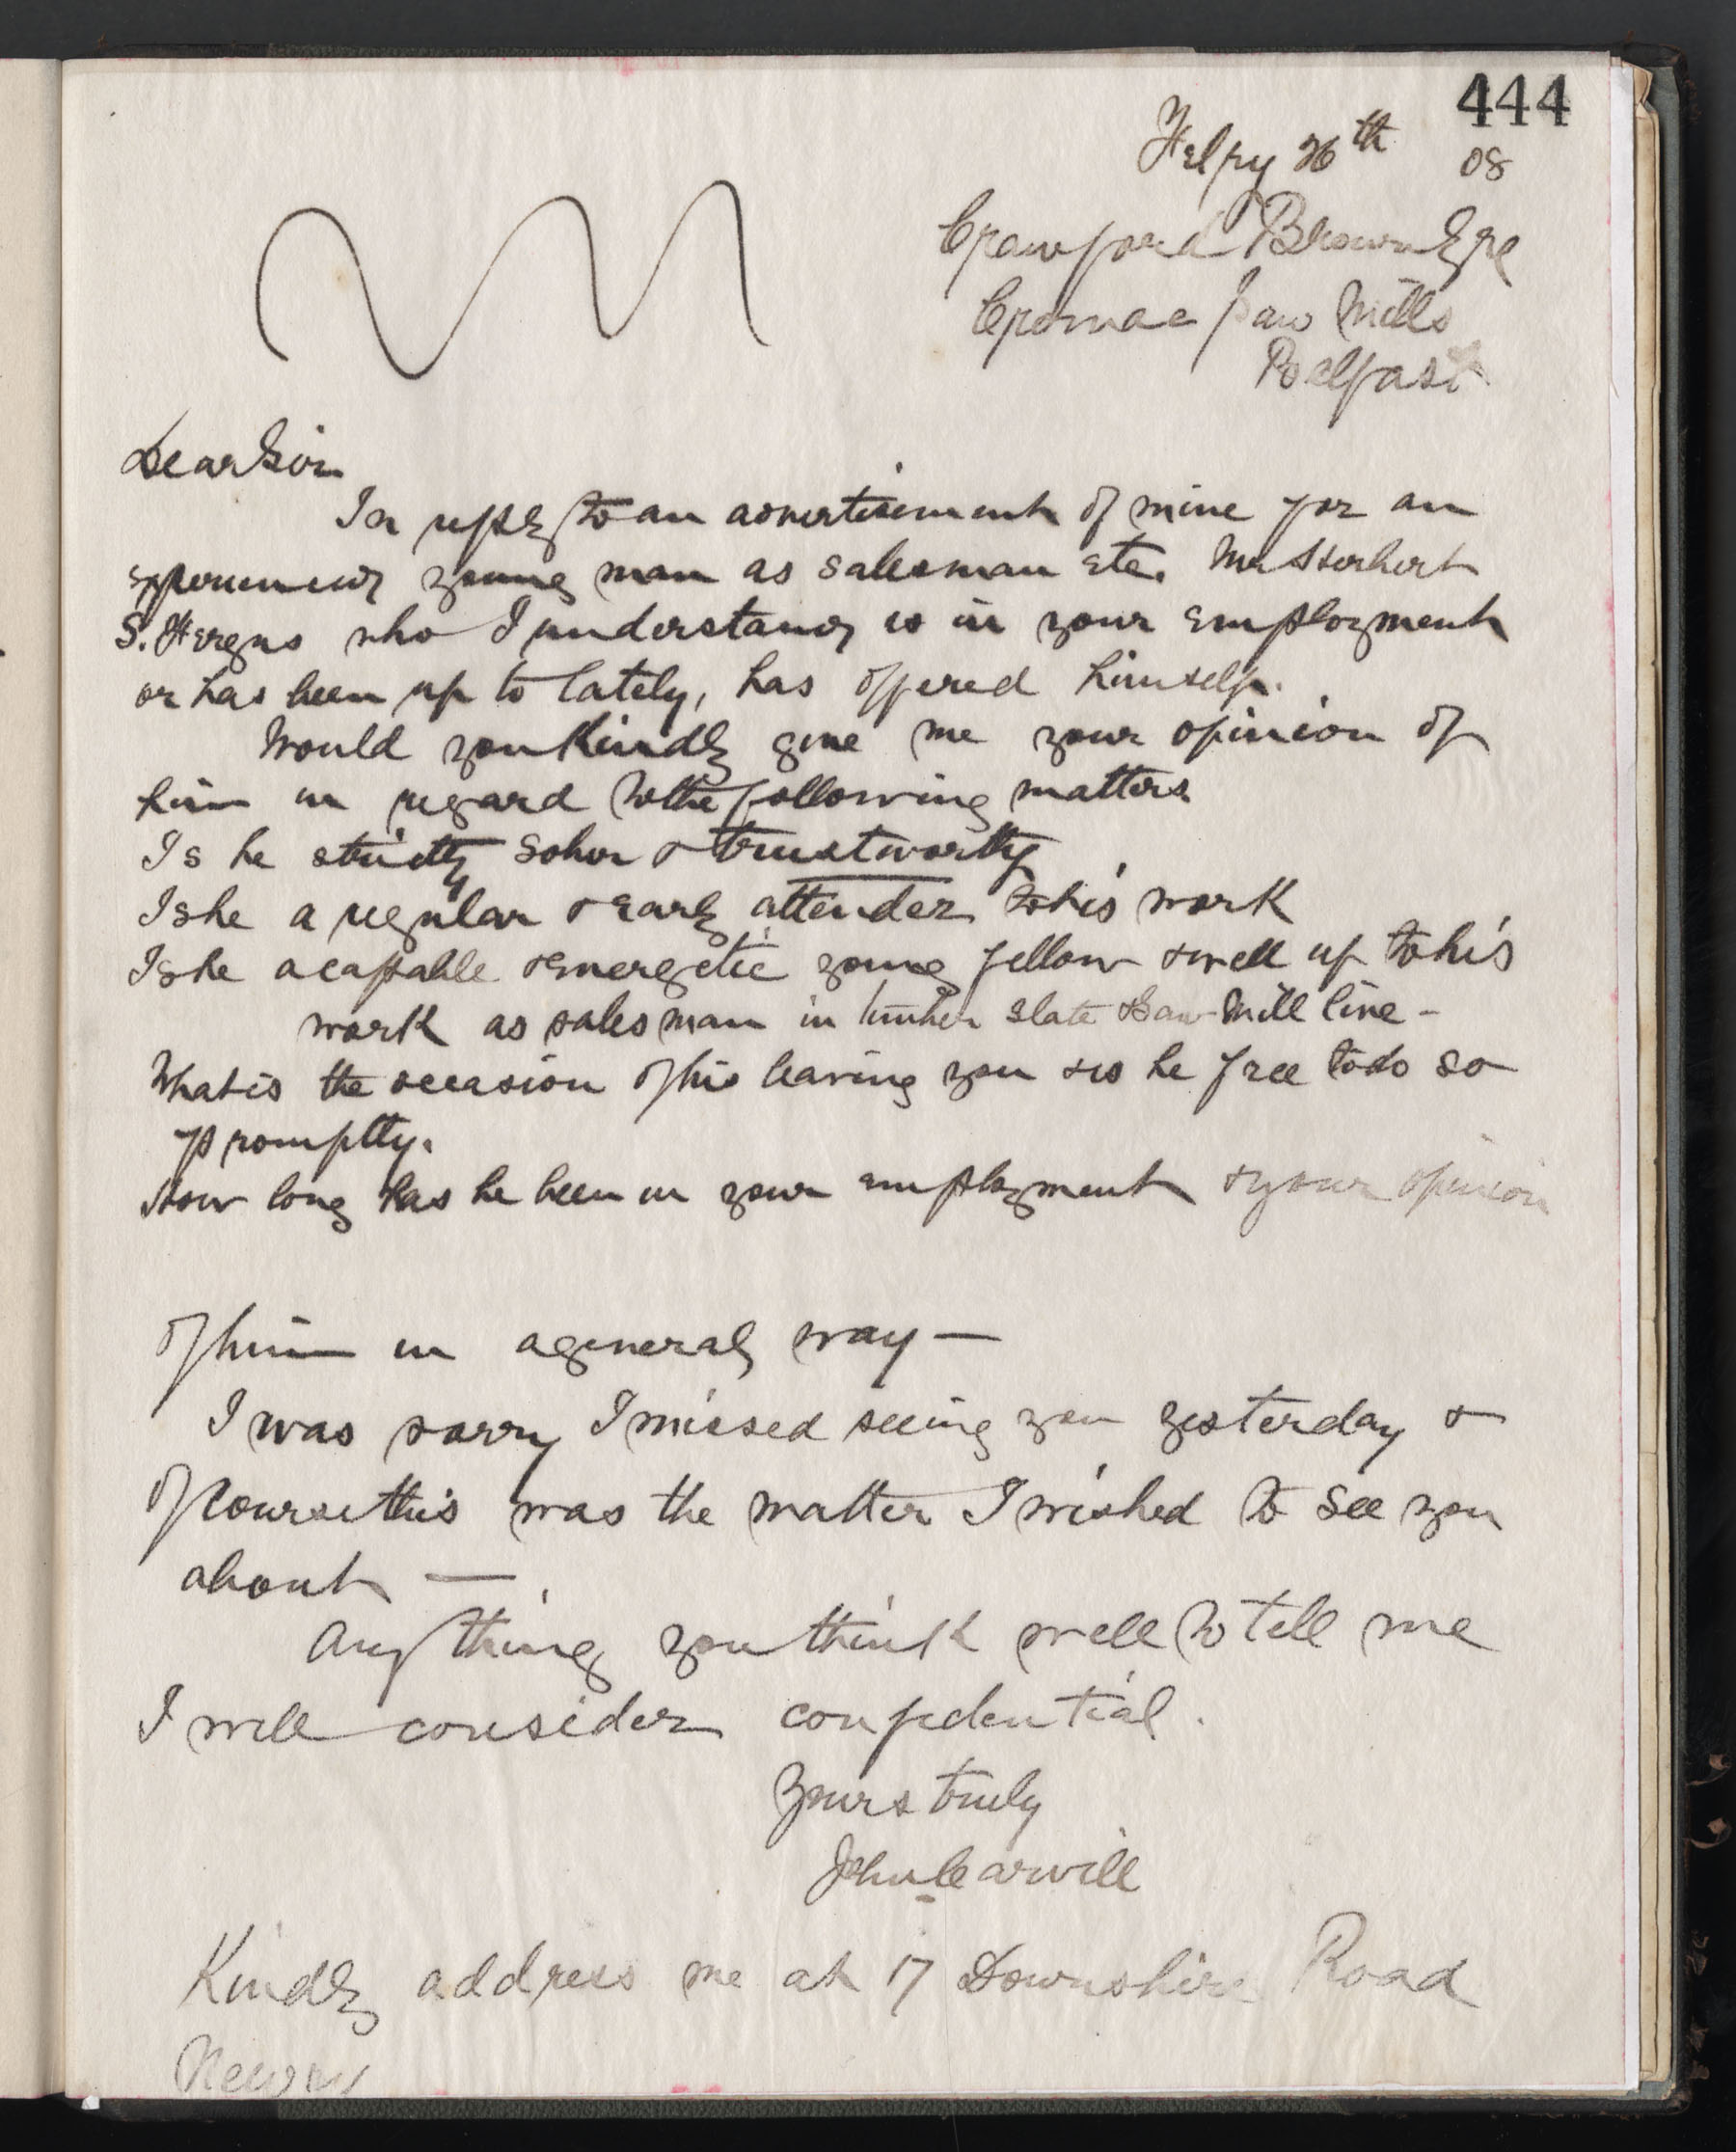 444
Feby 26th 08
Crawford Brown Esqre
Cromac Saw Mills
Belfast
Dear Sir
In reply to an advertisement of mine for an
experienced young man as salesman etc. Mr Herbert
S. who I understand is in your employment
or has been up to lately, has offered himself.
Would you kindly give me your opinion of
him in regard to the following matters
Is he strictly sober & trustworthy
Is he a regular & early attender to his work
Is he a capable & energetic young fellow & well up to his
work as salesman in timber slate & Saw Mill line -
What is the occasion of his leaving you & is he free to do so
promptly.
How long has he been in your employment & your opinion
of him in a general way —
I was sorry I missed seeing you yesterday &
of course this was the matter I wished to see you
about —
Any thing you think well to tell me
I will consider confidential.
Yours truly
John Carvill
Kindly address me at 17 Downshire Road
Newry